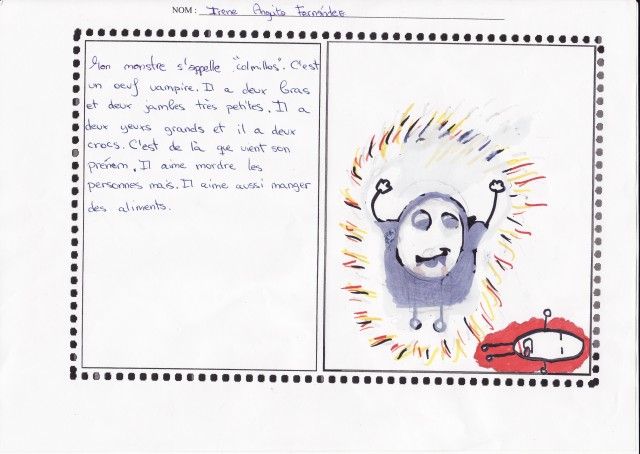 NOM: Irene Anguita Fernández
Mon monstre s'appelle "colmillos". C'est
un oeuf vampire. Il a deux bras
et deux jambes très petites. Il a
deux yeux grands et il a deux
crocs. C'est de là que vient son
prénom. Il aime mordre les
personnes mais. Il aime aussi manger
des aliments.